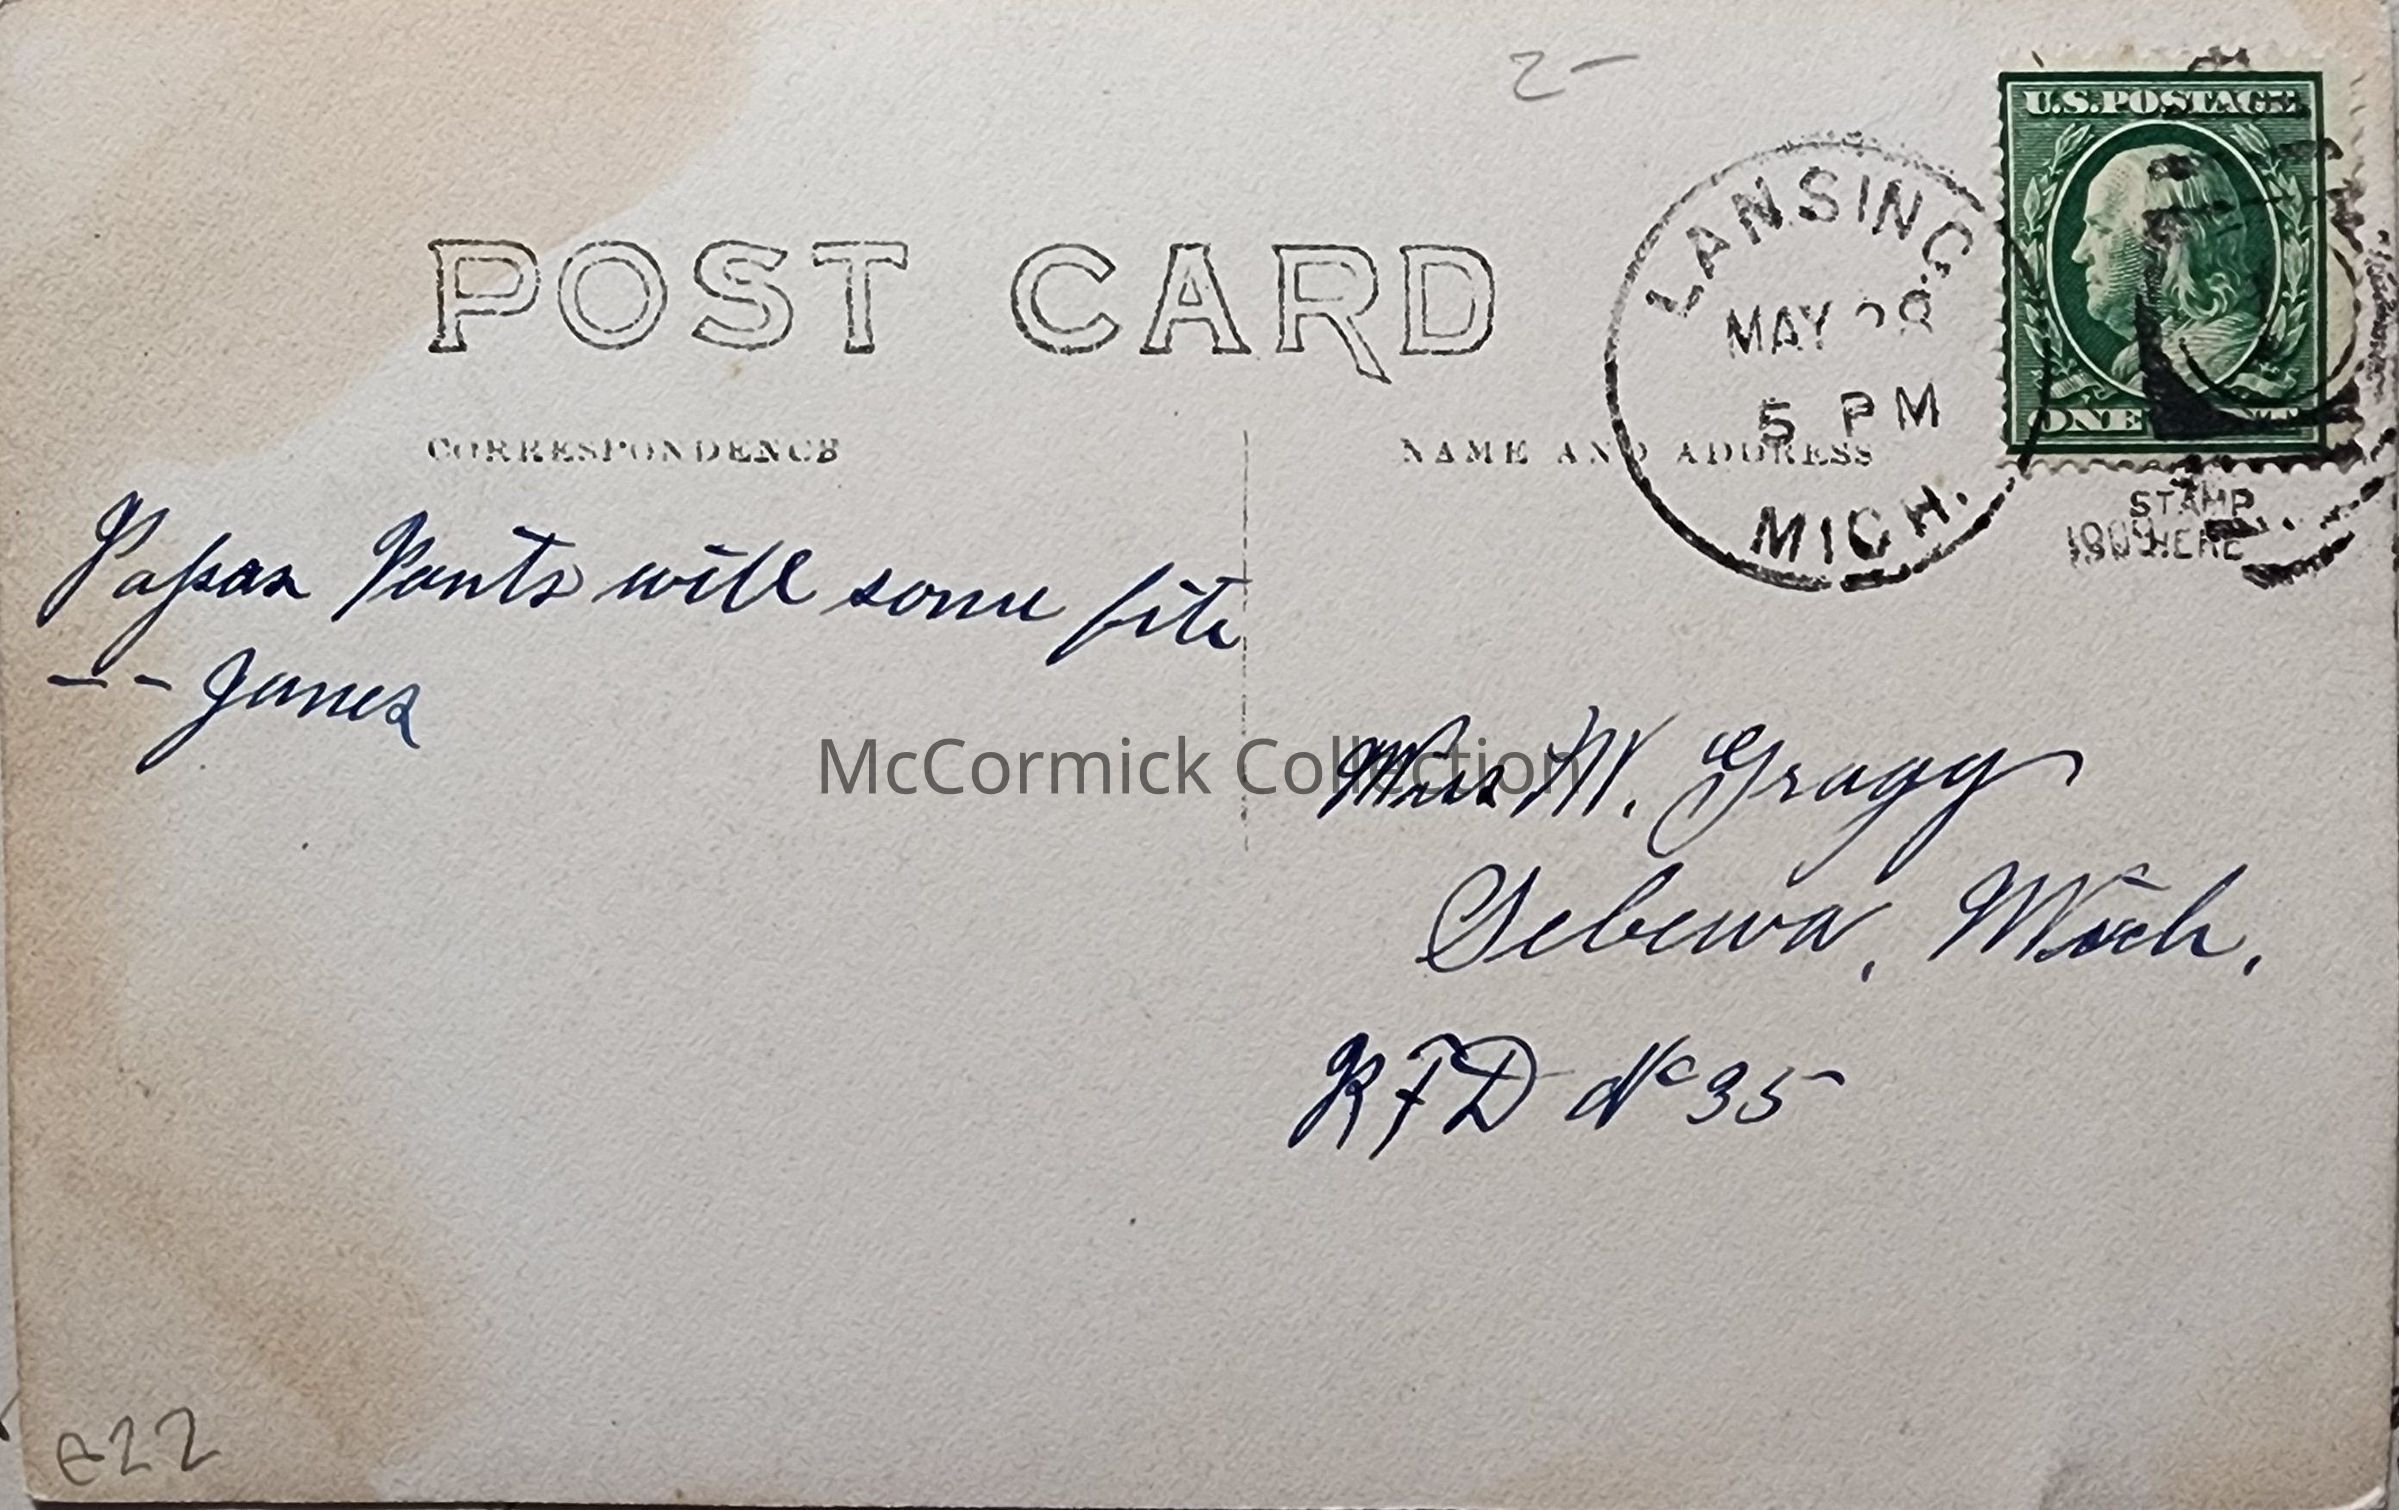 2-
U.S. POSTAGE
ONE CENT
LANSING
MAY 28
5 PM
MICH.
1909
STAMP
HERE
POST CARD
CORRESPONDENCE
NAME AND ADDRESS
Papas Pants will some fit
-- James
Miss M. Gragg
Sebewa, Mich.
RFD No 35
McCormick Collection
e22